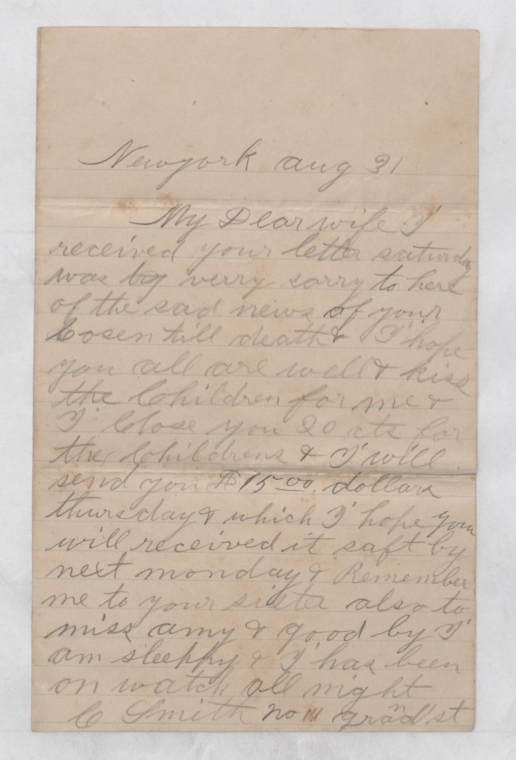 Newyork aug 31
My Dear wife I
received your letter saturday
was by verry sorry to here
of the sad news of your
Cosen till death & I hope
you all are well & kiss
the Children for me &
I Close you 20 cts for
the Childrens & I will
send you $15.00 dollars
thursday & which I hope you
will received it saft by
next monday & Remember
me to your sister also to
miss amy & good by I
am sleephy & I has been
on watch all night
C Smith no 111 grand st